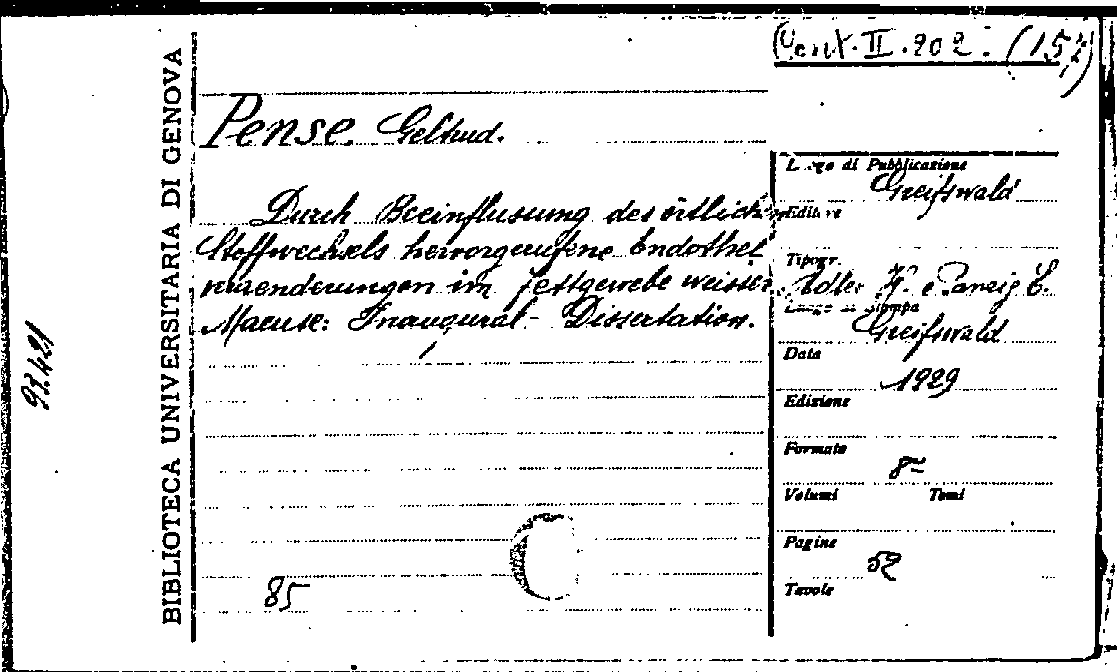 II.202. (15,
Pense. Gelhud.
Luogo di Pubblicazione
Greifswald
Durch Beeinflussung des örtlichen
Editore
Stoffwechsels hervorgerufene Endothel
Tipogr.
veraenderungen im Fettgewebe weisser
Adler H. e Panzig E.
Maeuse: Inaugural-Dissertation.
Luogo di Stampa
Greifswald
Data
1929
Edizione
Formato
8=
Volumi Tomi
Pagine
52
Tavole
85
BIBLIOTECA UNIVERSITARIA DI GENOVA
93421